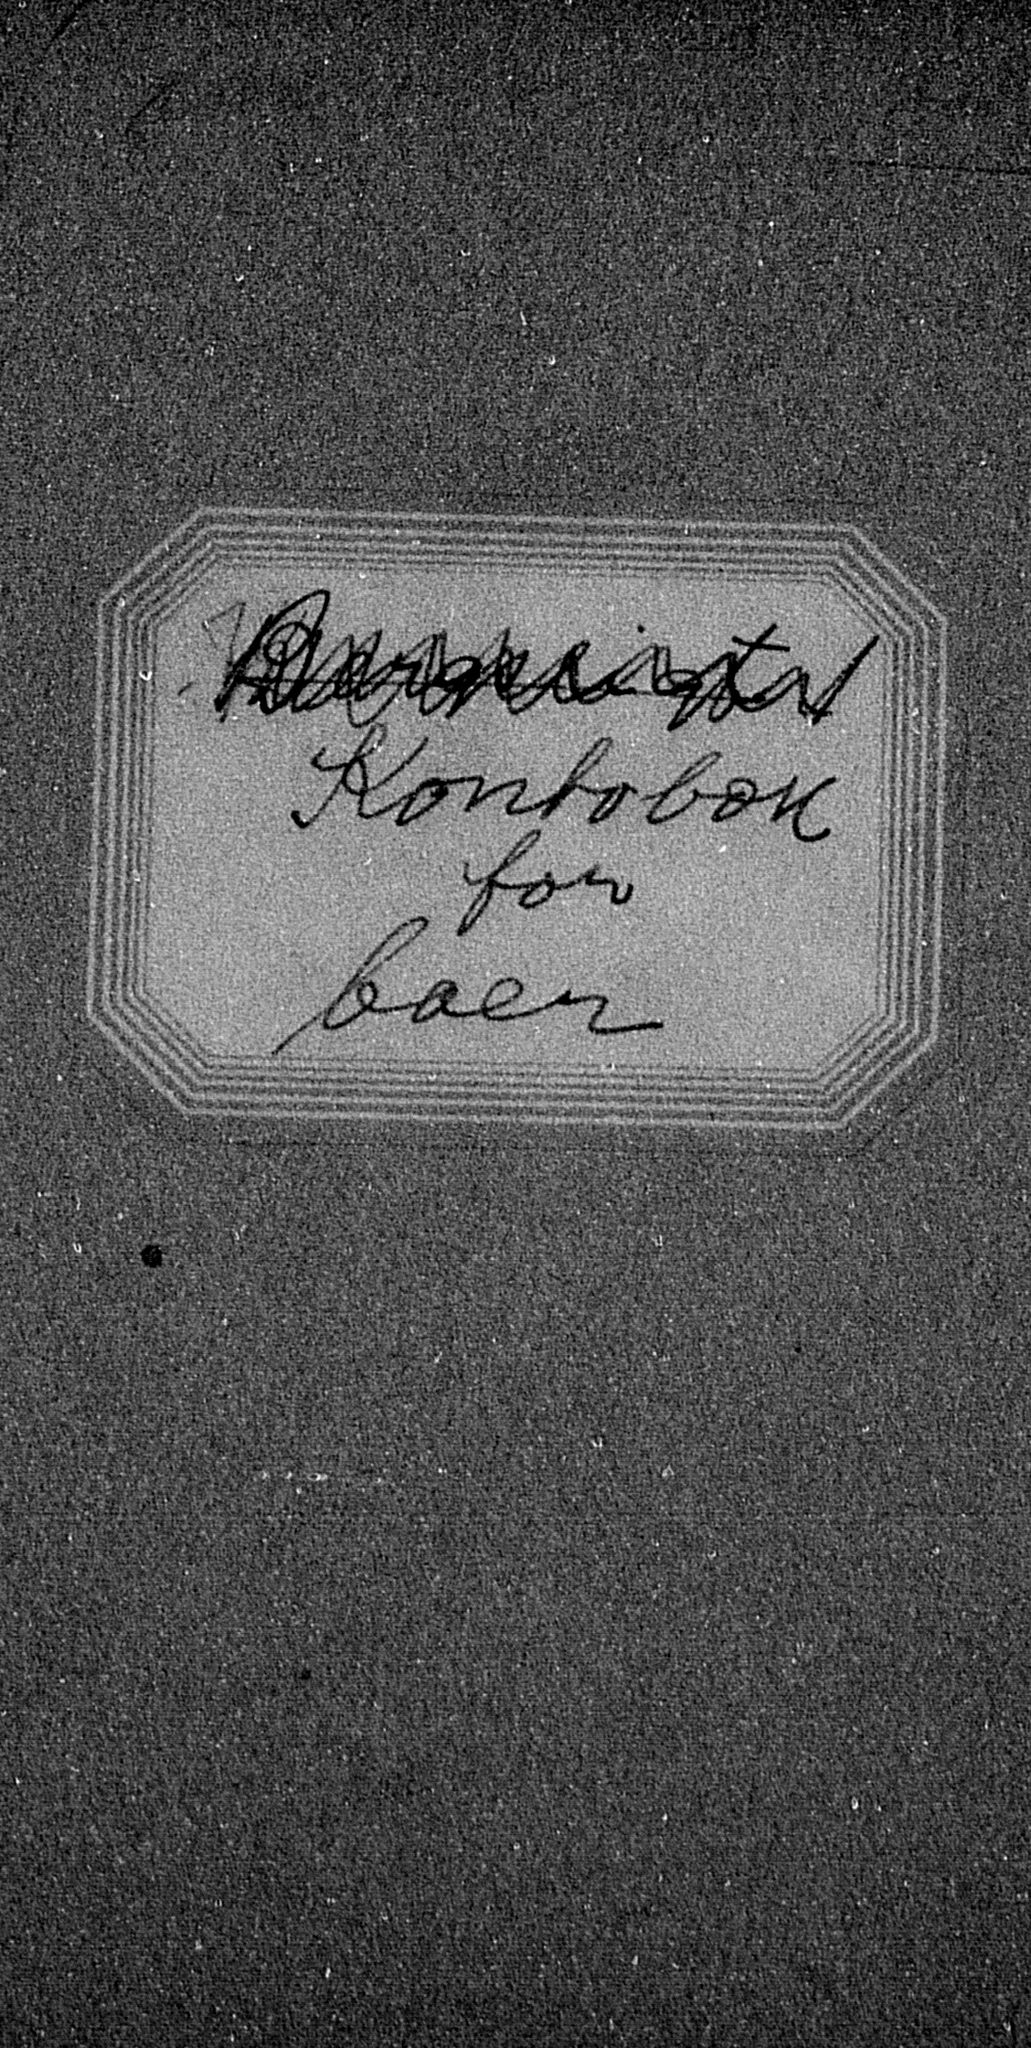 Kontobok
for
baer